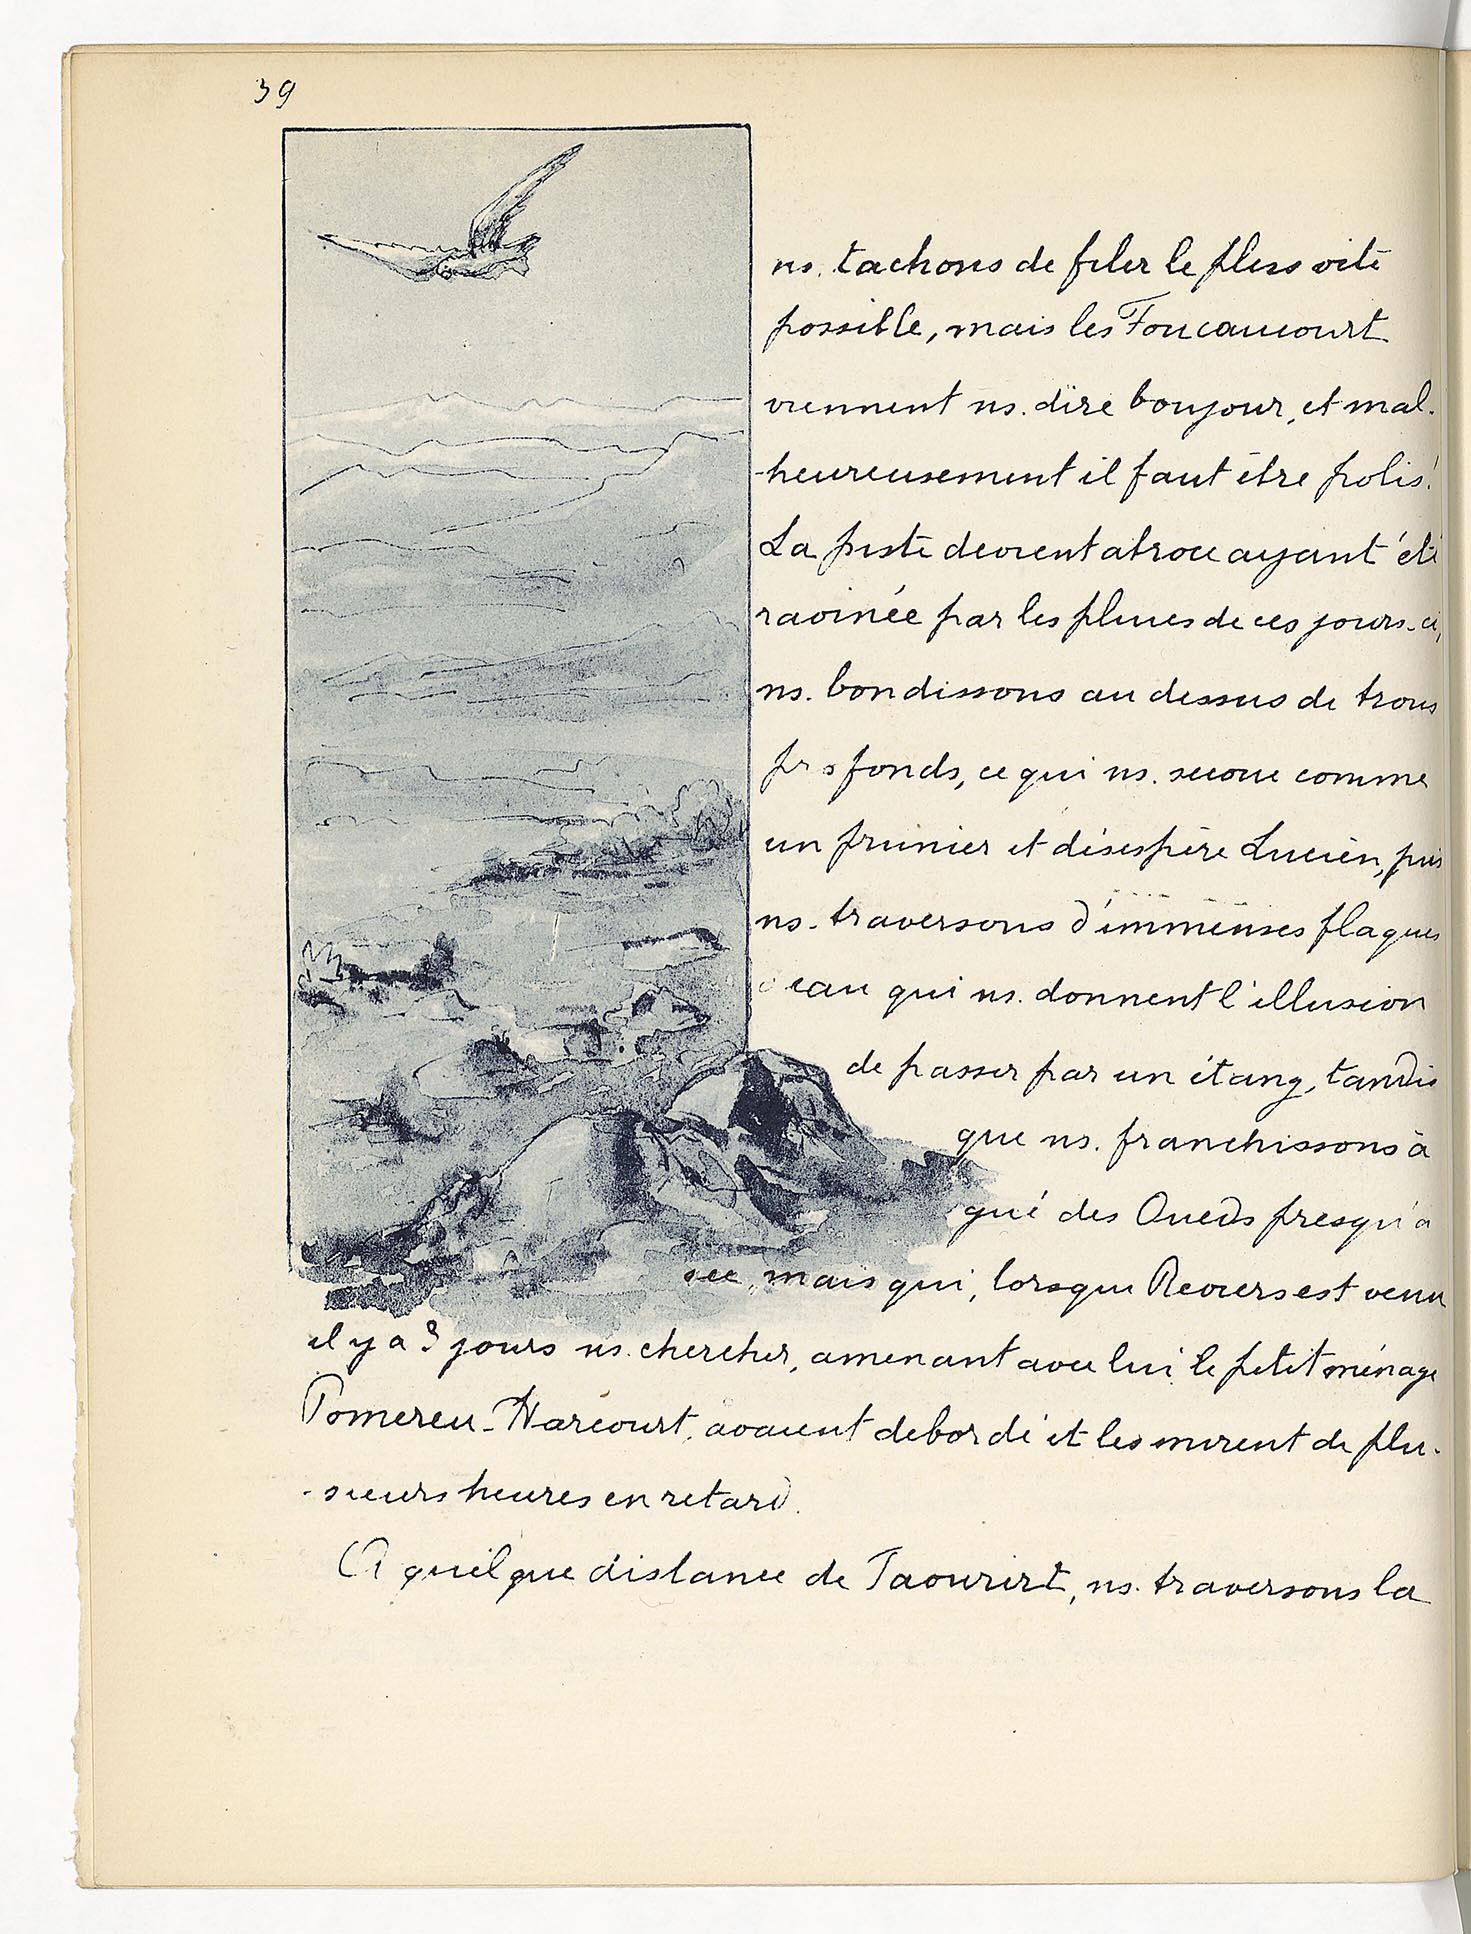 39
ns. tachons de filer le plus vite
possible, mais les Foucaucourt
viennent ns. dire bonjour, et mal-
-heureusement il faut être polis!
La piste devient atroce ayant été
ravinée par les pluies de ces jours-ci,
ns. bondissons au dessus de trous
profonds, ce qui ns. secoue comme
un prunier et désespère Lucien, puis
ns. traversons d'immenses flaques
d'eau qui ns. donnent l'illusion
de passer par un étang, tandis
que ns. franchissons à
gué des Oueds presqu'à
sec, mais qui, lorsque Reviers est venu
il y a 3 jours ns. chercher, amenant avec lui le petit ménage
Pomereu-Harcourt, avaient débordé et les mirent de plu-
-sieurs heures en retard.
A quelque distance de Taourirt, ns. traversons la